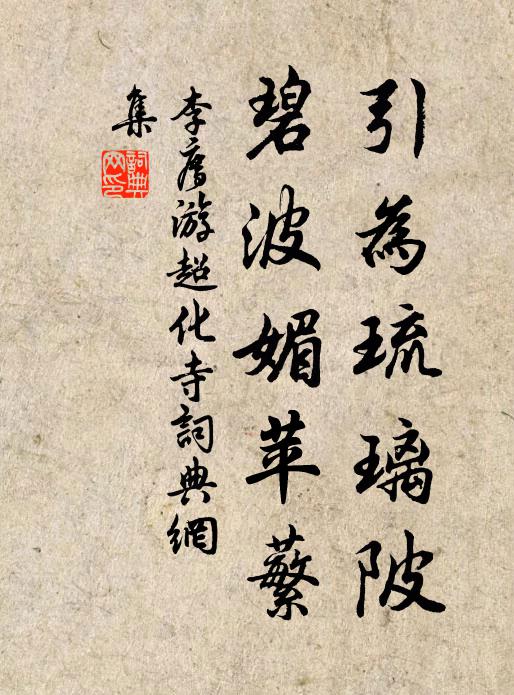 引為琉璃陂
碧波媚苹蘩
李廌游超化寺詞典網
集
詞典
网印